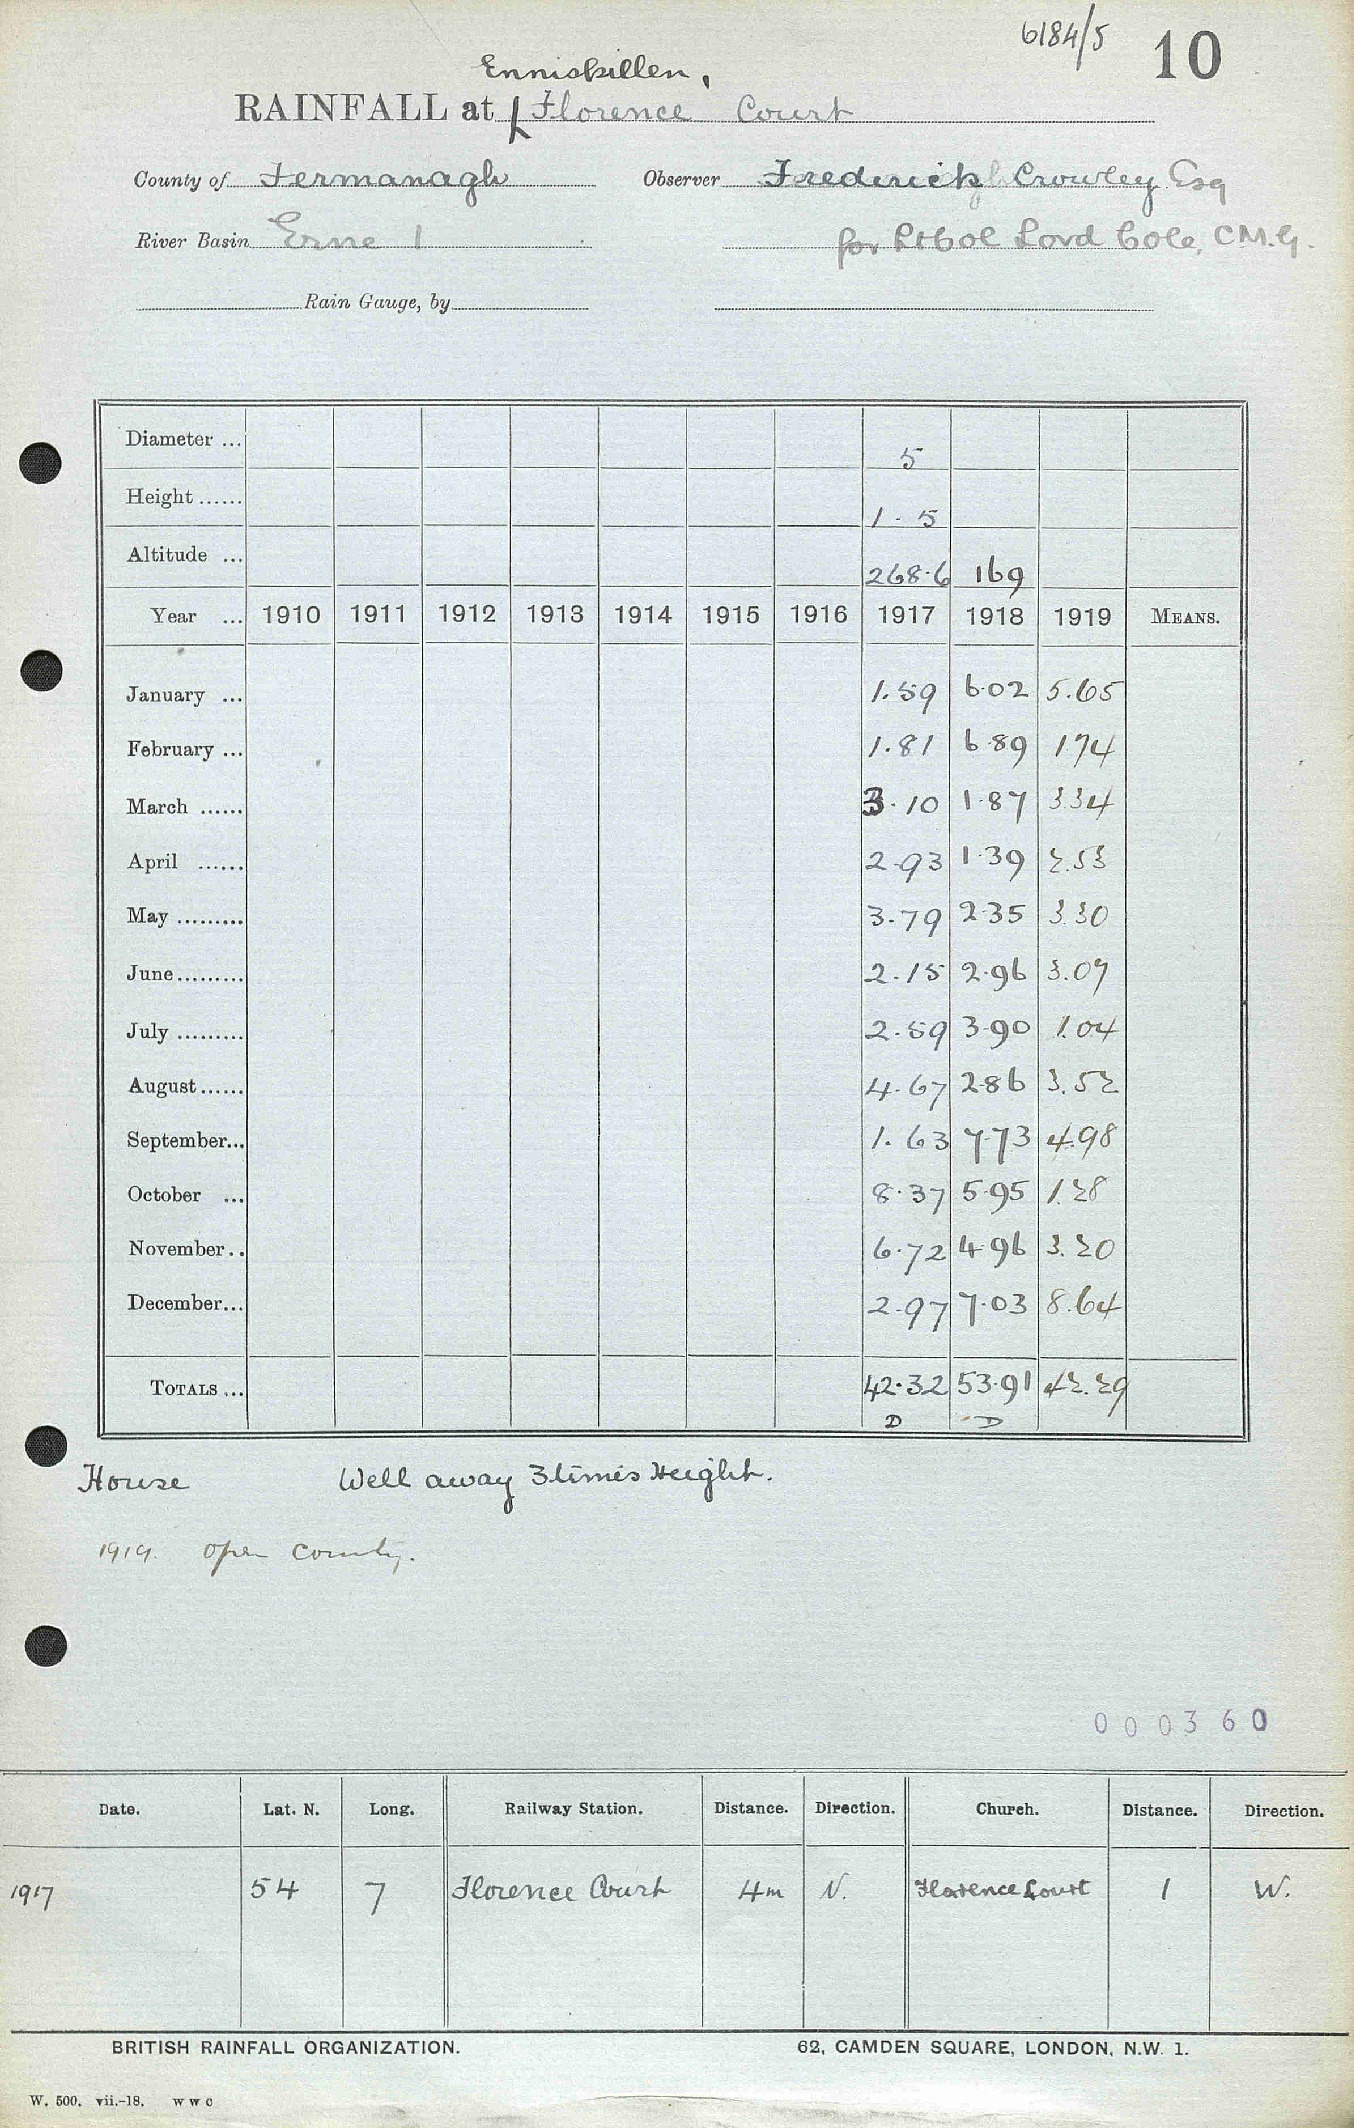 6184/5 10
Enniskillen,
RAINFALL at Florence Court
County of Fermanagh Observer Frederick Crowley Esq
River Basin Erne 1 for Lt Col Lord Cole, C.M.G.
Rain Gauge, by
Diameter ... 5
Height ...... 1 - 5
Altitude ... 268.6 169
Year ... 1910 1911 1912 1913 1914 1915 1916 1917 1918 1919 MEANS.
January ... 1.59 6.02 5.65
February ... 1.81 6.89 1.74
March ...... 3.10 1.87 3.34
April ...... 2.93 1.39 2.53
May ......... 3.79 2.35 3.30
June ......... 2.15 2.96 3.07
July ......... 2.59 3.90 1.04
August ...... 4.67 2.86 3.52
September... 1.63 7.73 4.98
October ... 8.37 5.95 1.28
November.. 6.72 4.96 3.20
December... 2.97 7.03 8.64
TOTALS ... 42.32 53.91 42.29
D D
House Well away 3 times Height.
1919. Open country.
000360
Date. Lat. N. Long. Railway Station. Distance. Direction. Church. Distance. Direction.
1917 54 7 Florence Court 4m N. Florence Court 1 W.
BRITISH RAINFALL ORGANIZATION. 62, CAMDEN SQUARE, LONDON, N.W. 1.
W. 500. vii.-18. W W C